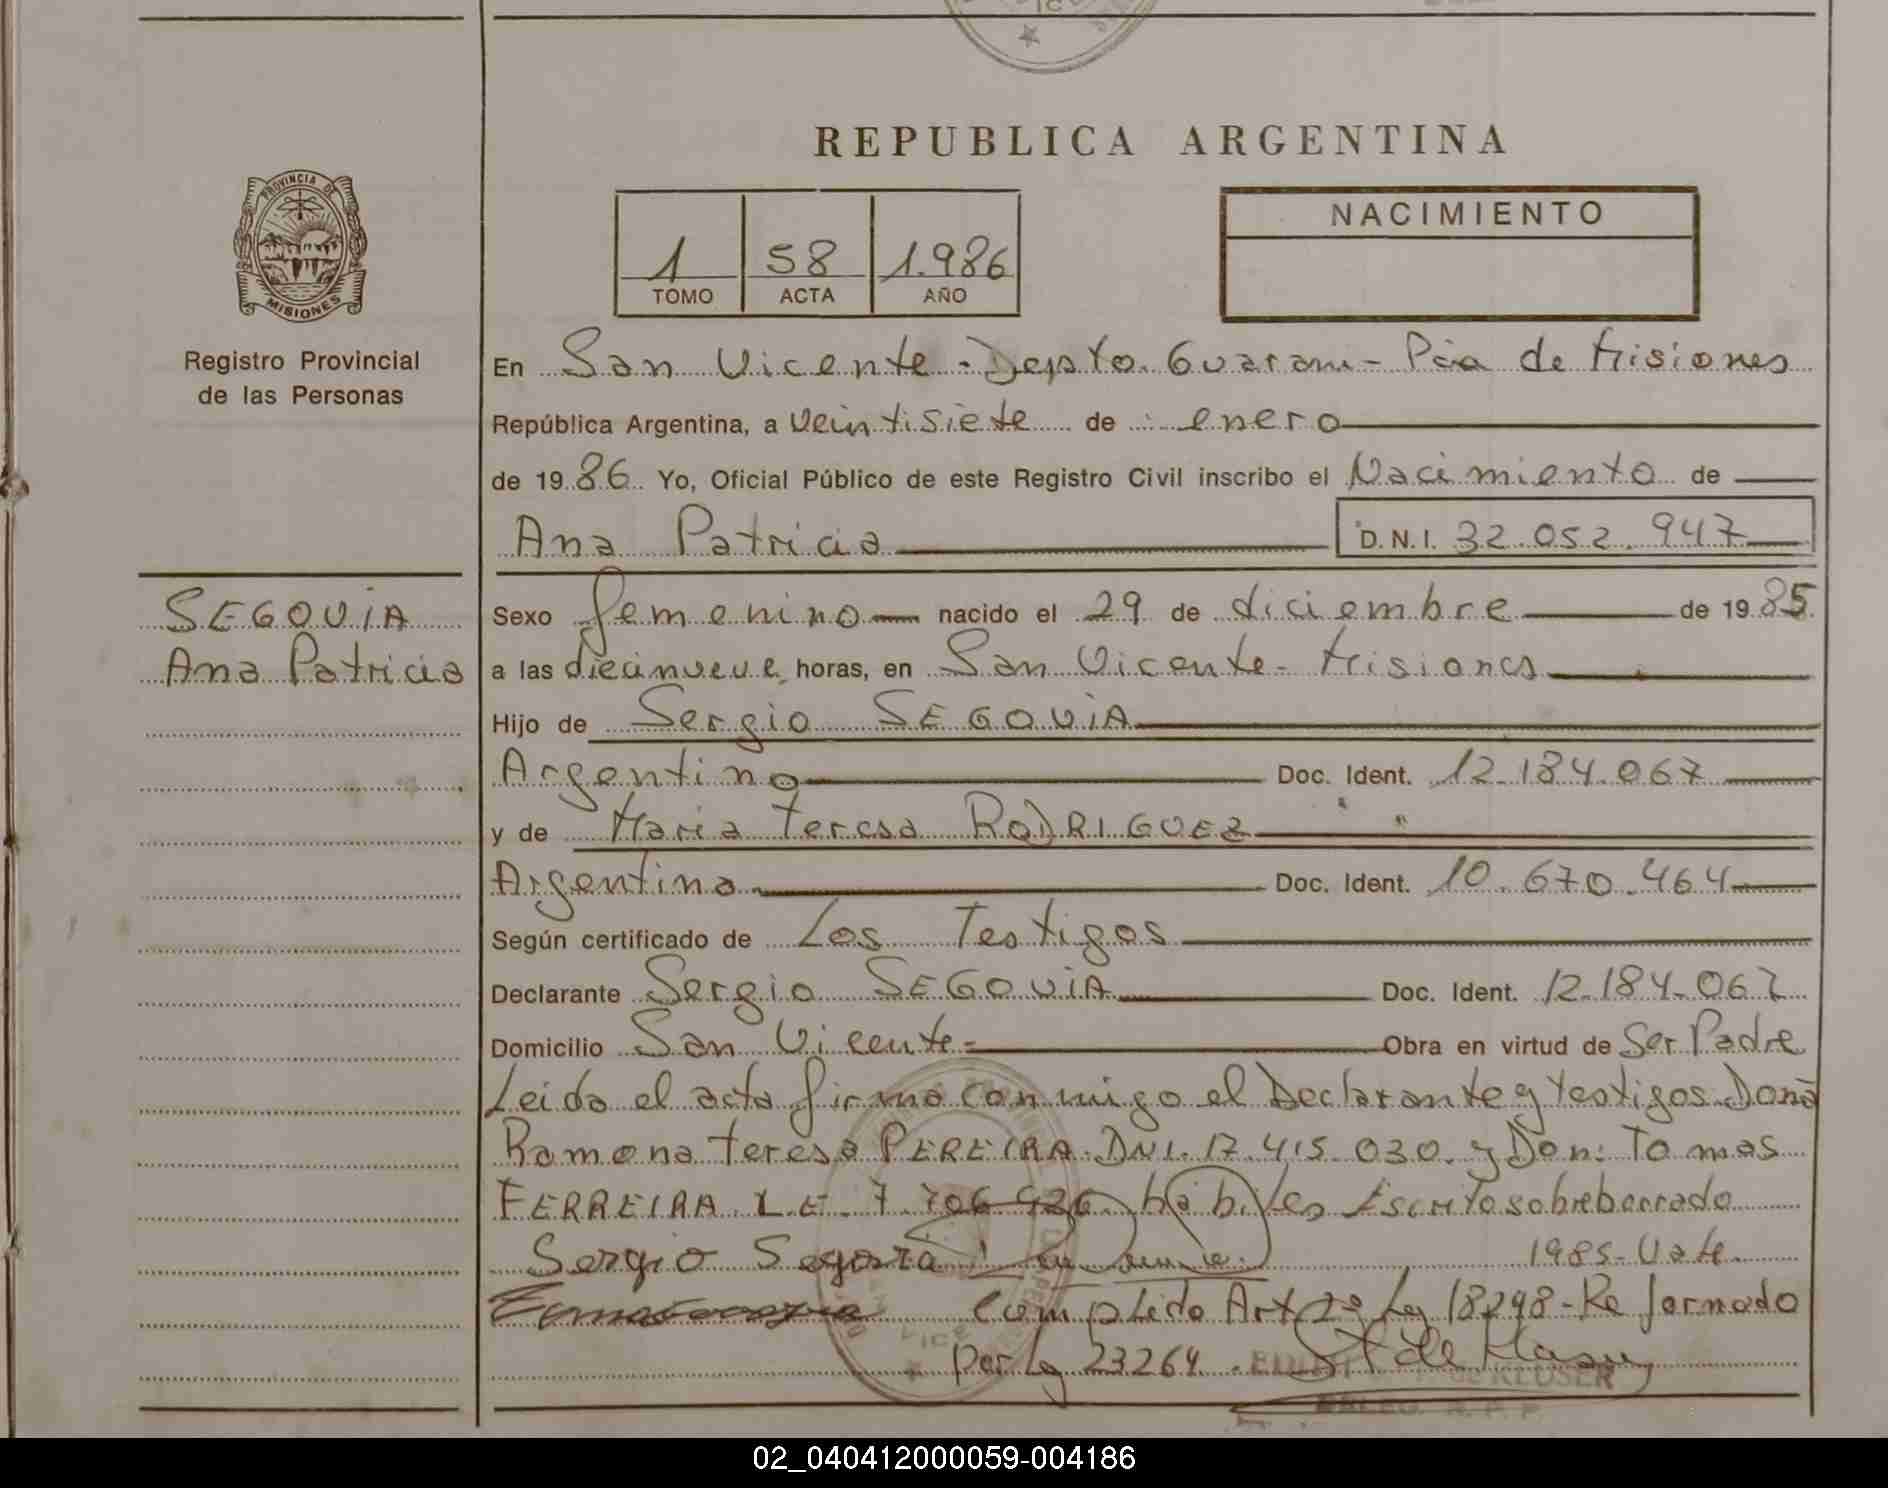 REPUBLICA ARGENTINA
PROVINCIA DE
MISIONES
Registro Provincial
de las Personas
1 58 1.986
TOMO ACTA AÑO
NACIMIENTO
En San Vicente - Depto. Guarani - Pcia de Misiones
República Argentina, a veintisiete de enero
de 19 86 Yo, Oficial Público de este Registro Civil inscribo el Nacimiento de
Ana Patricia D.N.I. 32.052.947
SEGOVIA
Ana Patricia
Sexo femenino nacido el 29 de diciembre de 19 85
a las diecinueve horas, en San Vicente - Misiones
Hijo de Sergio SEGOVIA
Argentino Doc. Ident. 12.184.067
y de Maria Teresa RODRIGUEZ
Argentina Doc. Ident. 10.670.464
Según certificado de Los Testigos
Declarante Sergio SEGOVIA Doc. Ident. 12.184.067
Domicilio San Vicente - Obra en virtud de Ser Padre
Leida el acta firma conmigo el Declarante y testigos Doña
Ramona Teresa PEREIRA. DNI. 17.415.030. y Don: Tomas
FERREIRA L.E. 7.706.926. habiles Escrito sobreborrado
Sergio Segovia 1985 - Vale.
Complido Art 2º Ley 18248 - Reformado
por Ley 23264.
de KLUSER
02_040412000059-004186